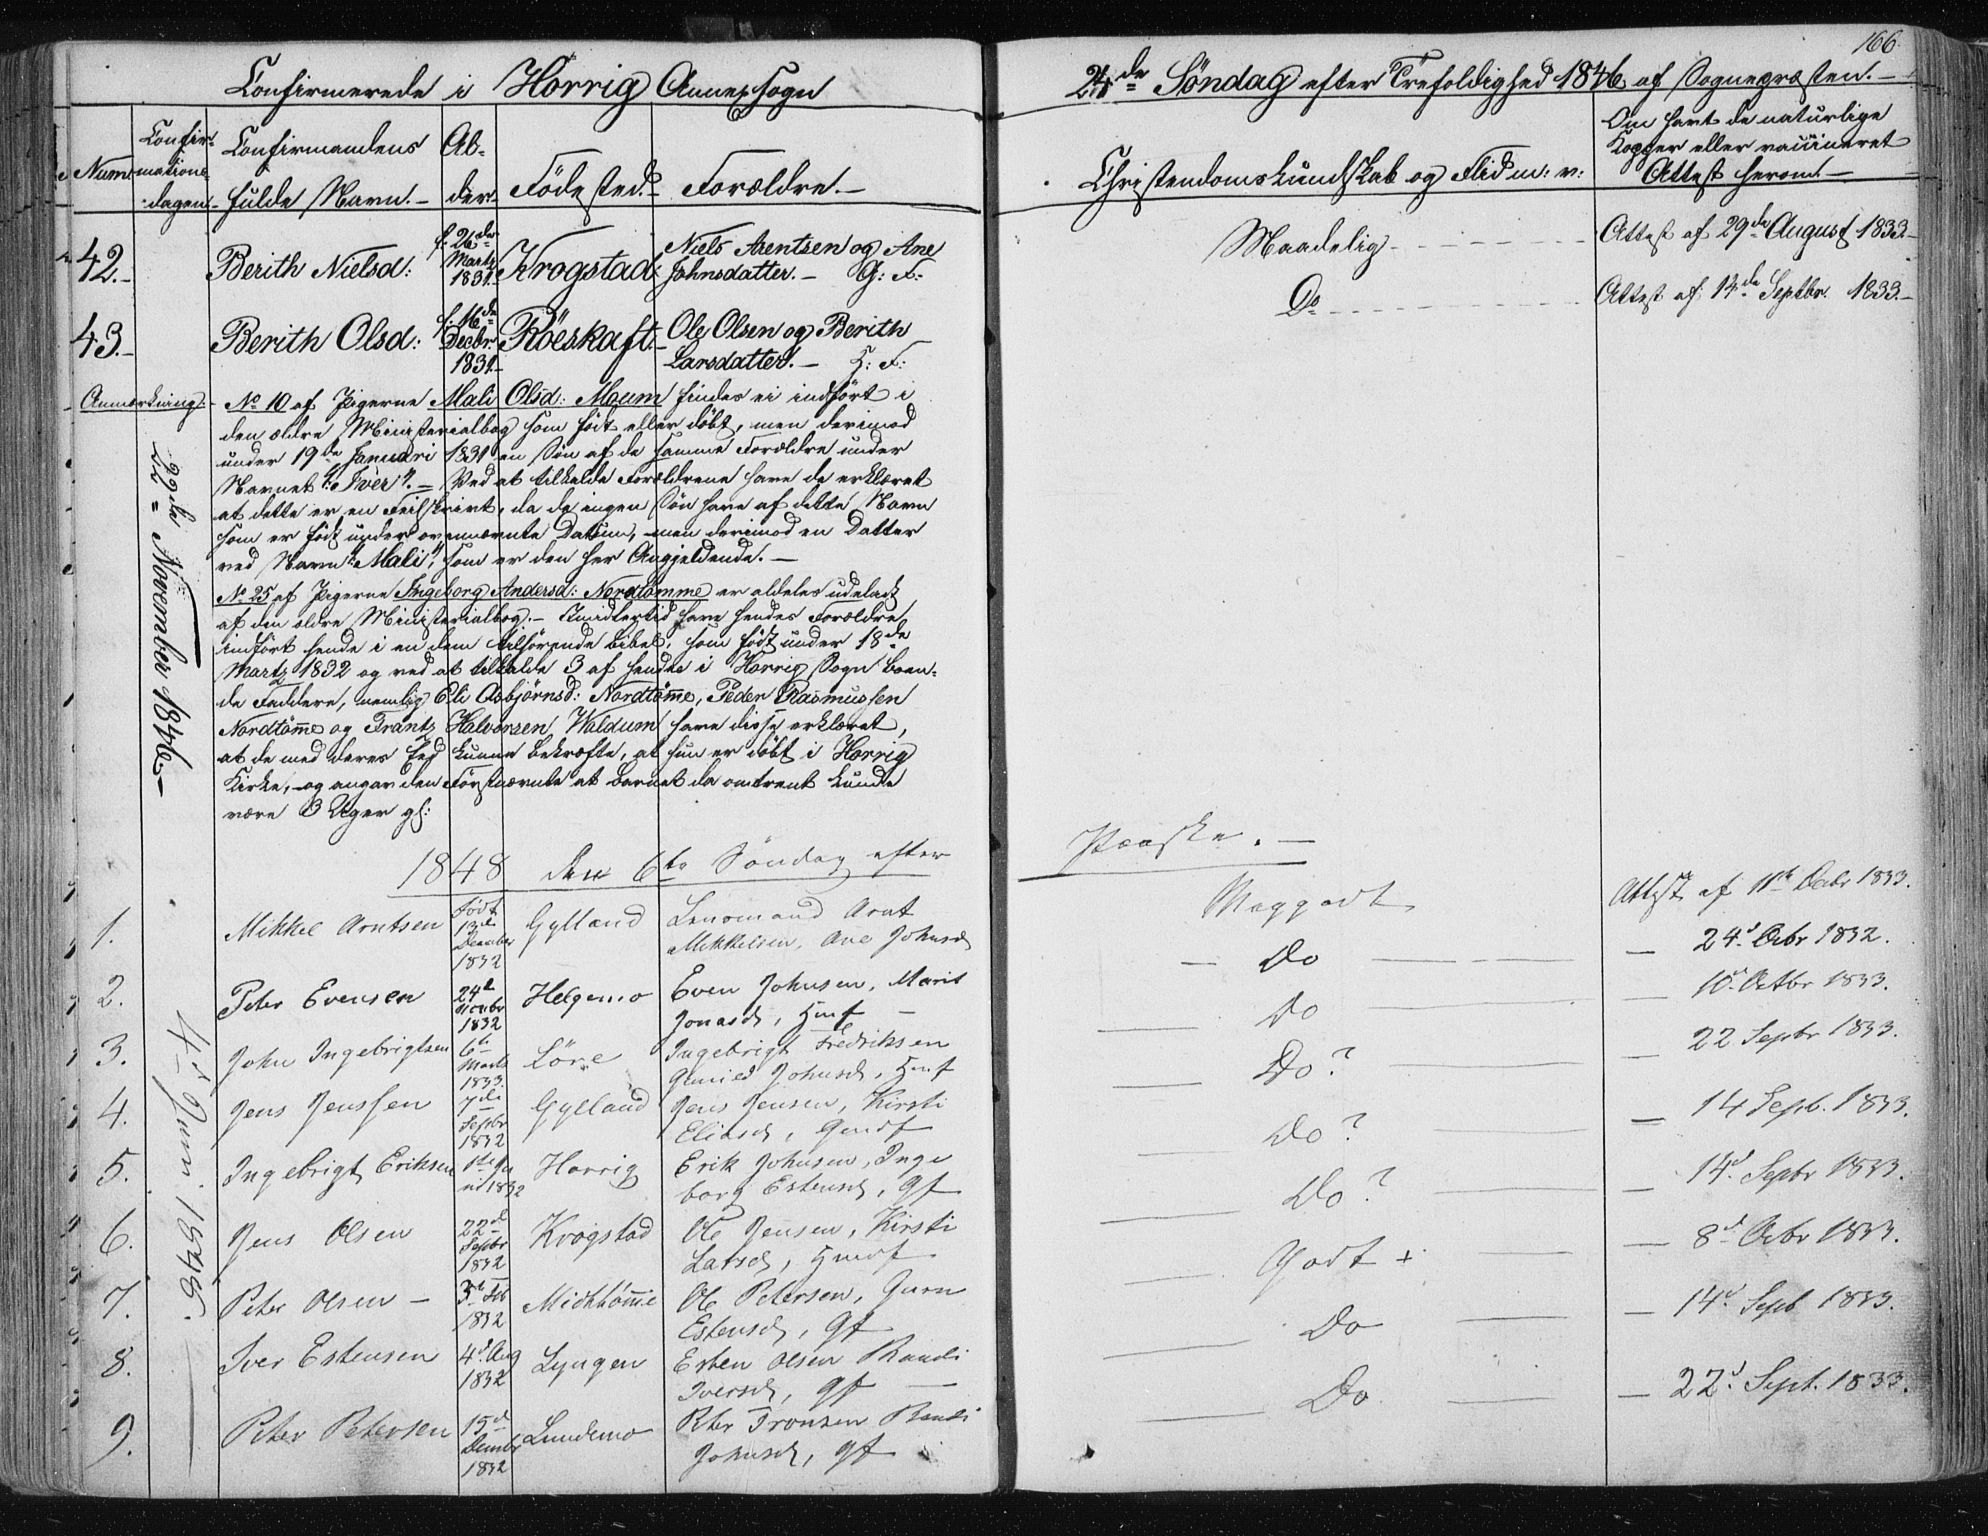 166.
Confirmerede i Horrig AnnexSogn
24de Söndag efter Trefoldighed 1846 af Sognepræsten.-
Num:
Confir-
mations-
dagen.-
Confirmandens
fulde Navn.-
Al-
der-
Födested.-
Forældre.-
Christendomskundskab og Flid m: v:
Om havt de naturlige
Kopper eller vaccineret
Attest herom.-
42.- Berith Nielsd: f. 26de Martz 1831.- Krogstad. Niels Arentsen og Ane
Johnsdatter.- G: F:
Maadelig - - - Attest af 29de August 1833.-
43.- Berith Olsd: f. 16de Decbr: 1831.- Röeskaft.- Ole Olsen og Berith
Larsdatter.- H: F:
Do - - - Attest af 14de Septbr. 1833.-
22de November 1846.-
Anmærkning:- No 10 af Pigerne Mali Olsd: Moum findes ei indfört i
den ældre Ministerialbog som födt eller döbt, men derimod
under 19de Januari 1831 en Sön af de samme Forældre under
Navnet "Iver".- Ved at tilkalde Forældrene have de erklæret
at dette er en Feilskrivt, da de ingen Sön have af dette Navn
som er födt under ovennævnte Datum, men derimod en Datter
ved Navn "Mali", som er den her Angjeldende.-
No 25 af Pigerne Ingeborg Andersd: Nordtömme er aldeles udeladt
af den ældre Ministerialbog.- Imidlertid have hendes Forældre
indfört hende i en dem tilhörende Bibel, som födt under 18de
Martz 1832 og ved at tilkalde 3 af hendes i Horrig Sogn boen-
de Faddere, nemlig Eli Asbjörnsd: Nordtömme, Peder Rasmussen
Nordtömme og Frantz Halvorsen Waldum have disse erklæret,
at de med deres Eed kunne bekræfte, at hun er döbt i Horrig
Kirke, og angav den Förstnævnte at Barnet da omtrent kunde
være 3 Uger gl:
1848 den 6te Söndag efter
Paaske.-
4d Juni 1848.
1. Mikkel Arntsen Födt 13de December 1832 Gylland Lensmand Arnt
Mikkelsen, Ane Johnsd
Meggodt Attest af 11te Octbr 1833.
2. Peter Evensen 24d 1832 Helgemo Even Johnsen, Marit
Jonasd, Hmf -
Do - 24d Octbr 1832.
3. John Ingebrigtsen 6te Marts 1833. Löre Ingebrigt Fredriksen
Gunild Johnsd, Hmf
Do 10d Octbr 1833.
4. Jens Jenssen 7de Septbr 1832 Gylland Jens Jensen, Kirsti
Eliasd, Gmdf
Do? 22 Septbr 1833.
5. Ingebrigt Eriksen 1832 Horrig Erik Johnsen, Inge
borg Estensd, gf
Do? 14 Sepb. 1833.
6. Jens Olsen 22d Septbr 1832 Krogstad Ole Jensen, Kirsti
Larsd, Hmdf
Do? 14d Septbr 1833.
7. Peter Olsen - 3d Feb 1832 Midttömme Ole Petersen, Guru
Estensd, gf
Godt + 8d Octbr 1833.
8. Iver Estensen 4d Aug 1832 Lyngen Esten Olsen Randi
Iversd, gf -
Do - 14d Sepb 1833.
9. Peter Petersen 15d Decmbr 1832 Lundemo Peter Tronsen Randi
Johnsd, gf
Do - 22d Sept. 1833.